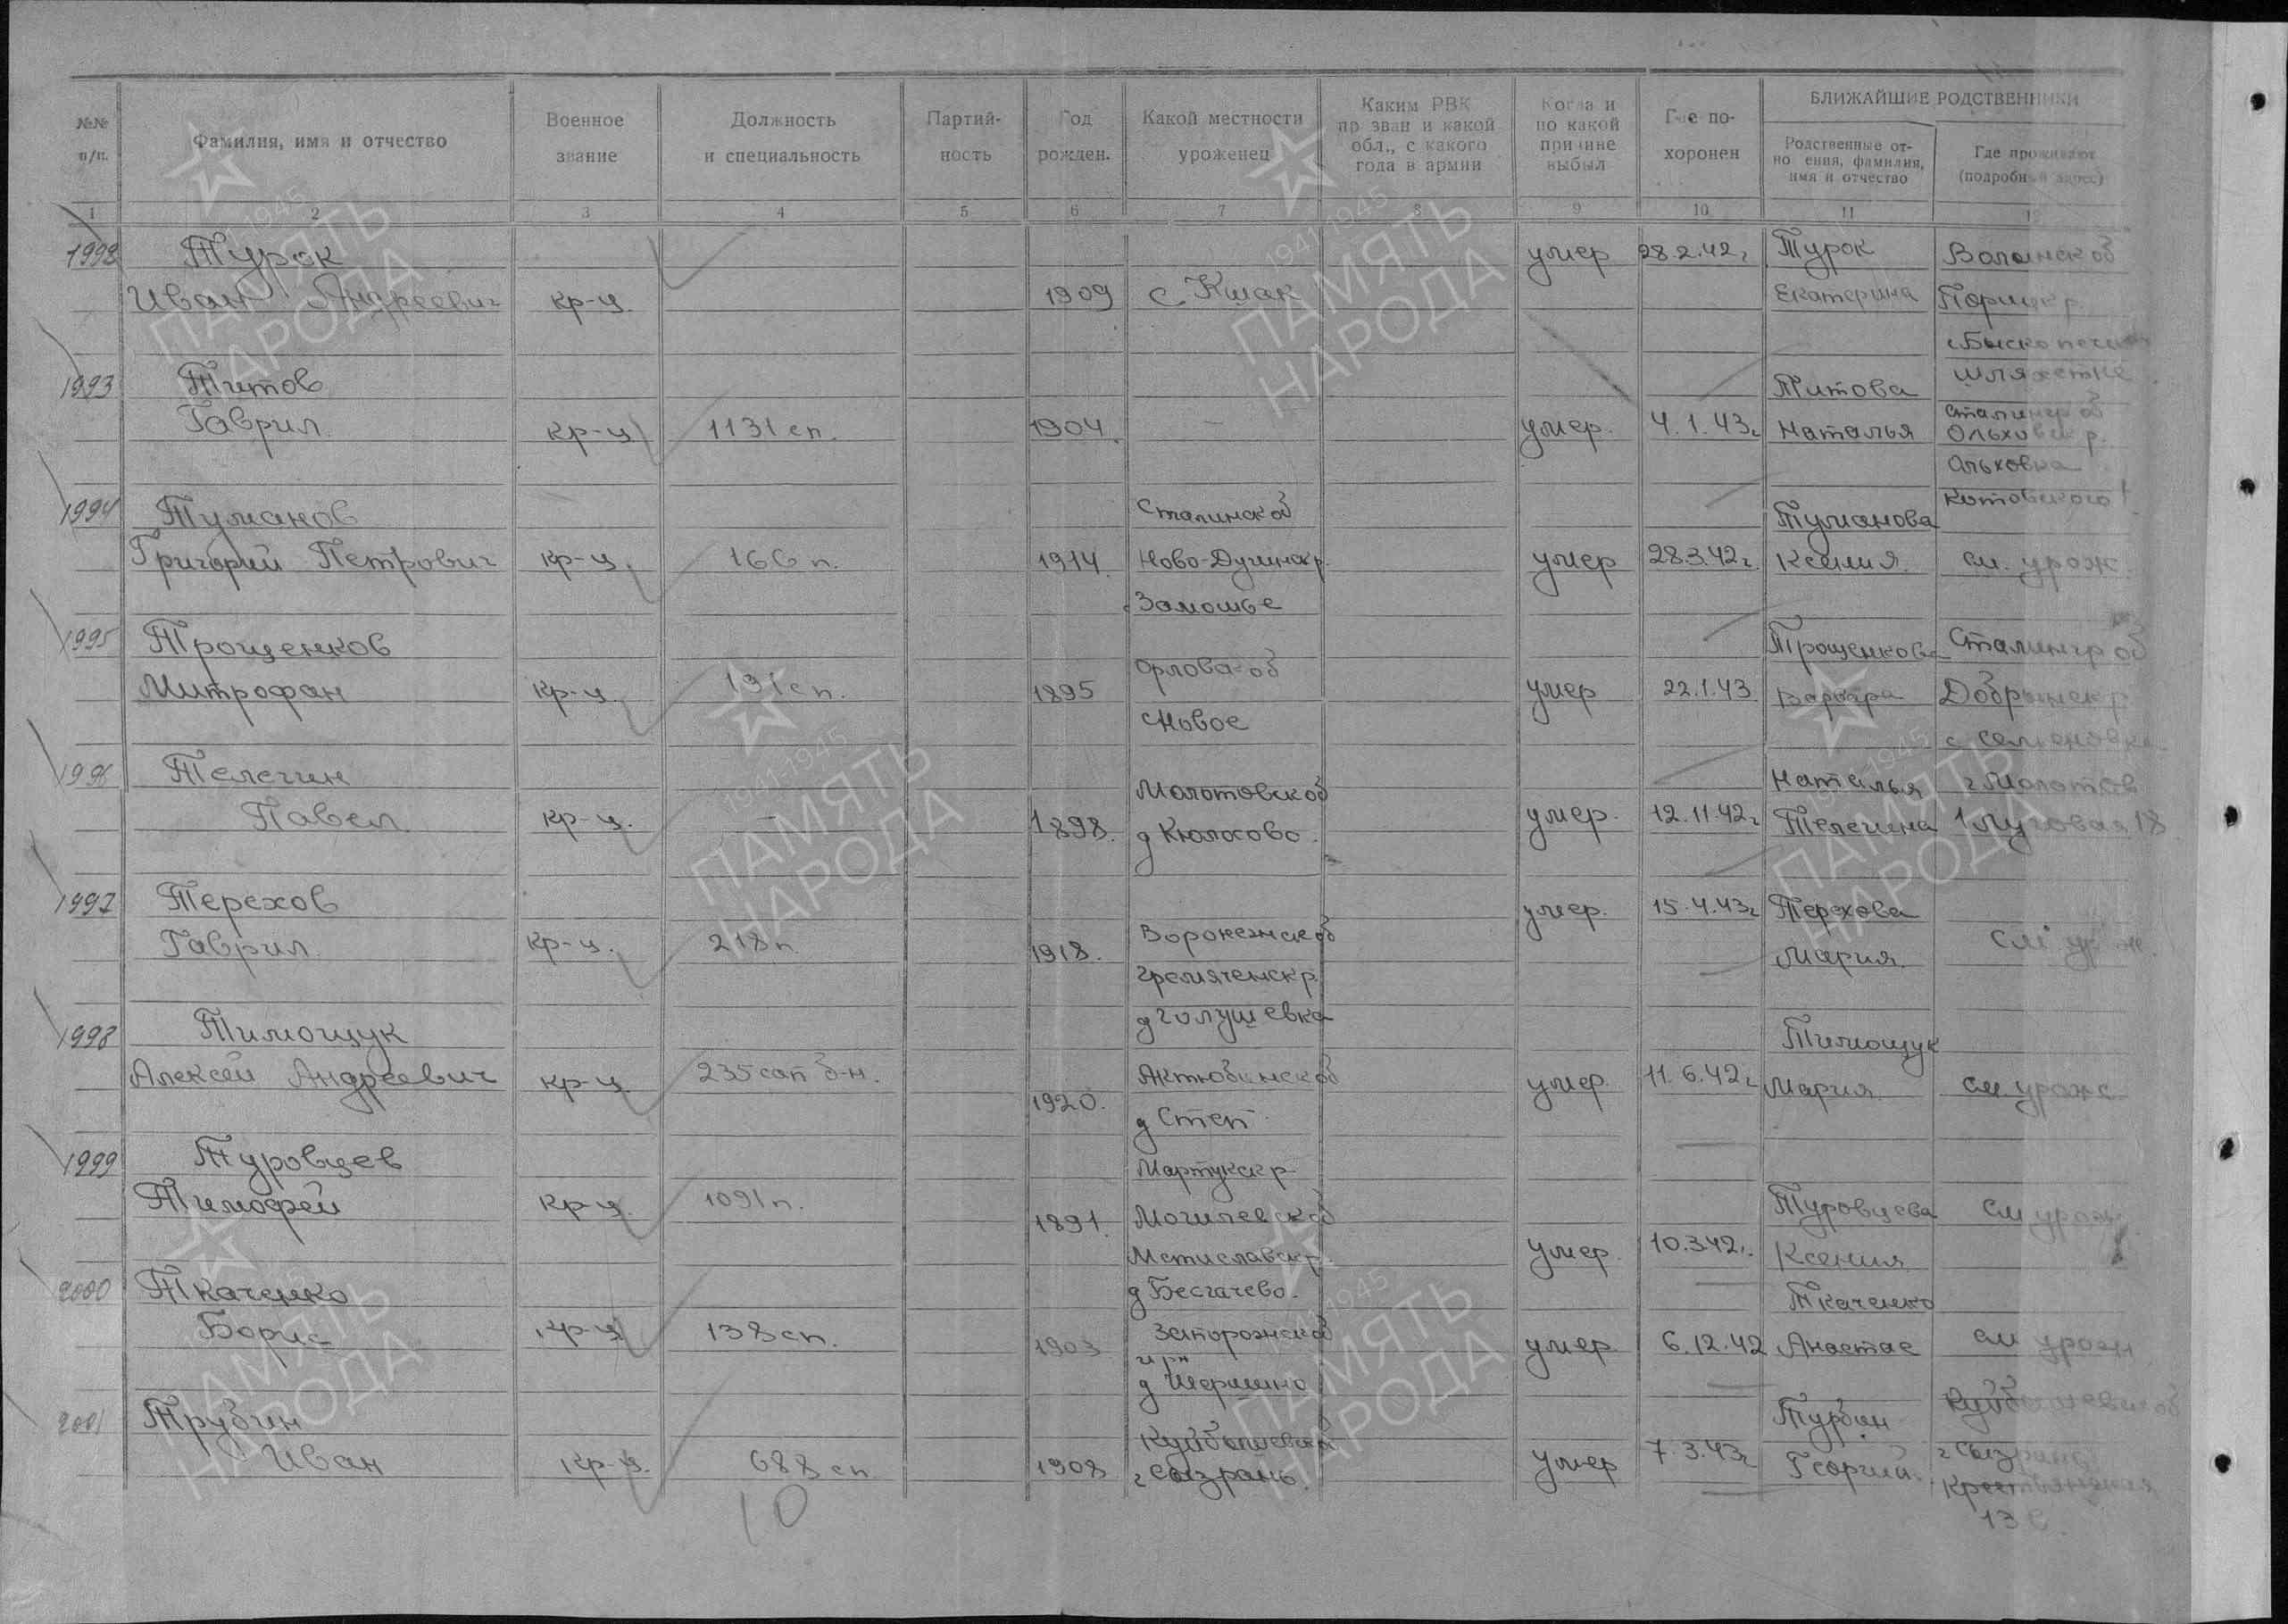 №№ п/п.
Фамилия, имя и отчество
Военное звание
Должность и специальность
Партий-ность
Год рожден.
Какой местности уроженец
Каким РВК пр зван и какой обл., с какого года в армии
Когда и по какой причине выбыл
Где по-хоронен
БЛИЖАЙШИЕ РОДСТВЕННИКИ
Родственные от-но ения, фамилия, имя и отчество
Где проживают (подробный адрес)
1 2 3 4 5 6 7 8 9 10 11 12
1992 Турок умер 28.2.42г Турок
Иван Андреевич кр-ц 1909 с Кшак Екатерина
1993 Титов Титова
Гаврил кр-ц 1131 сп. 1904. — умер. 4.1.43г Наталья Ольховск р.
Ольховка
1994 Туманов Сталинской Туманова Котовского 1
Григорий Петрович кр-ц. 166 п. 1914. Ново-Дугинск р. умер 28.3.42г. Ксения см. урож.
Замошье
1995 Трощенков Трощенкова Сталингр об
Митрофан кр-ц. 131 сп. Орлова-об 1895 умер 22.1.43 Варвара Добринск р
с Новое с Семеновка
1996 Телегин Молотовской Наталья г Молотов
Павел кр-ц. — 1898. д Кюлосово. умер. 12.11.42г Телегина 1 Луговая 18
1997 Терехов умер. 15.4.43г Терехова
Гаврил кр-ц. 218 п. 1918. Воронежской Мария. см урож.
Гремяченск р.
д Голушевка
1998 Тимощук Тимощук
Алексей Андреевич кр-ц. 235 сап б-н. 1920. Актюбинской умер. 11.6.42г Мария. см. урож
д Степ
1999 Туровцев Мартукск р
Тимофей кр-ц. 1091 п. 1891. Могилевской Туровцева см урож
Мстиславск р. умер. 10.3.42г. Ксения
2000 Ткаченко д Бесгачево. Ткаченко
Борис кр-ц 138 сп. 1903 Запорожской умер. 6.12.42 Анастас см урож
д Шермино
2001 Трубин Турбин Куйбышевской
Иван кр-ц. 688 сп. 1908 Куйбышевской г Сызрань. умер 7.3.43г Георгий г Сызрань
Крестьянская
13
10
1941-1945
ПАМЯТЬ НАРОДА
1941-1945
ПАМЯТЬ НАРОДА
1941-1945
ПАМЯТЬ НАРОДА
1941-1945
ПАМЯТЬ НАРОДА
1941-1945
ПАМЯТЬ НАРОДА
1941-1945
ПАМЯТЬ НАРОДА